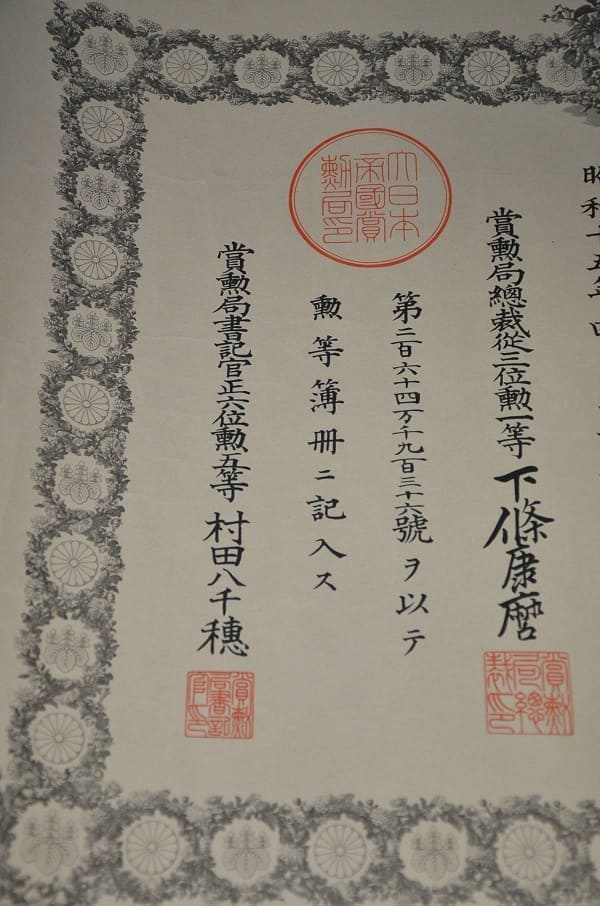 昭和十五年
賞勲局總裁從三位勲一等 下條康麿
賞勲局總裁印
大日本
帝國賞
勲局印
第二百六十四万千九百三十六號ヲ以テ
勲等簿册ニ記入ス
賞勲局書記官正六位勲五等 村田八千穗
賞勲局書記官印